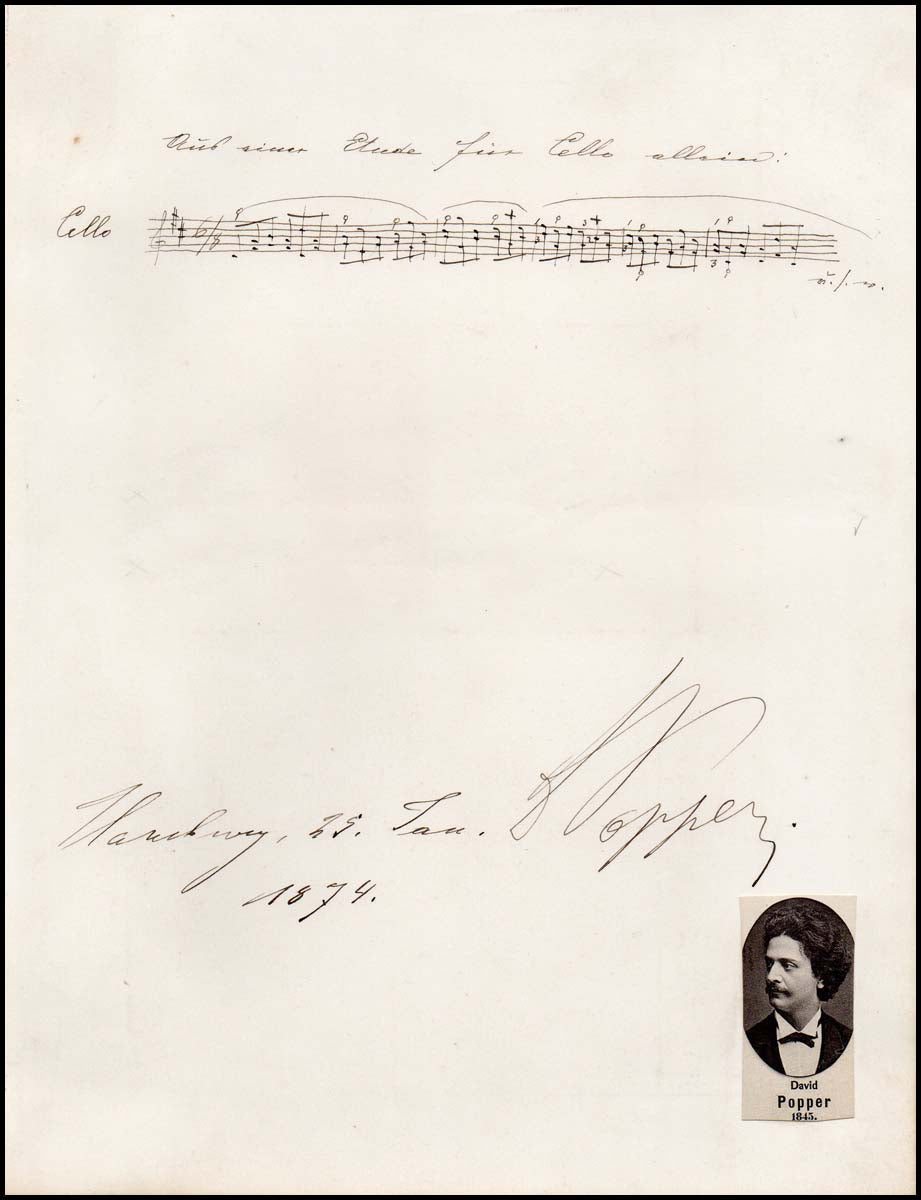 Aus einer Etude für Cello allein:
Cello
6/8
u. s. w.
Hamburg, 25. Jan. D Popper.
1874.
David
Popper
1845.